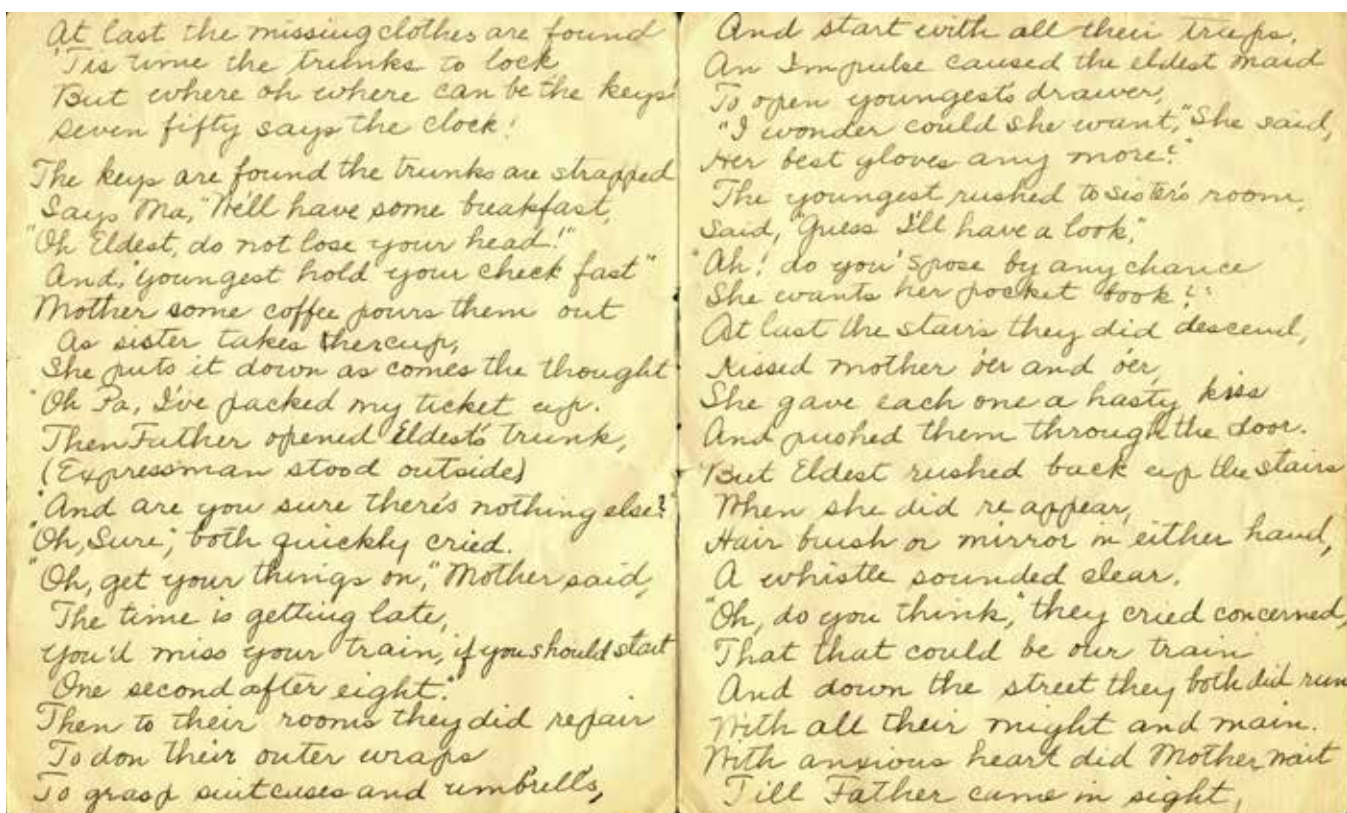 At last the missing clothes are found
'Tis time the trunks to lock
But where oh where can be the keys
Seven fifty says the clock!
The keys are found the trunks are strapped
Says Ma, "We'll have some breakfast,
"Oh Eldest, do not lose your head!"
And, "youngest hold your check fast"
Mother some coffee pours them out
As sister takes her cup,
She puts it down as comes the thought
"Oh Pa, I've packed my ticket up.
Then Father opened Eldest's trunk,
(Expressman stood outside)
"And are you sure there's nothing else?"
"Oh, Sure", both quickly cried.
"Oh, get your things on," Mother said,
The time is getting late,
You'd miss your train, if you should start
One second after eight."
Then to their rooms they did repair
To don their outer wraps
To grasp suitcases and umbrell's,
And start with all their traps.
An Impulse caused the eldest maid
To open youngest's drawer,
"I wonder could she want," She said,
Her best gloves any more?"
The youngest rushed to sister's room,
Said, "Guess I'll have a look,"
"Ah! do you 'spose by any chance
She wants her pocket book?"
At last the stairs they did descend,
Kissed mother o'er and o'er,
She gave each one a hasty kiss
And pushed them through the door.
But Eldest rushed back up the stairs
When she did re appear,
Hair brush or mirror in either hand,
A whistle sounded clear.
"Oh, do you think," they cried concerned,
That that could be our train
And down the street they both did run
With all their might and main.
With anxious heart did Mother wait
Till Father came in sight,